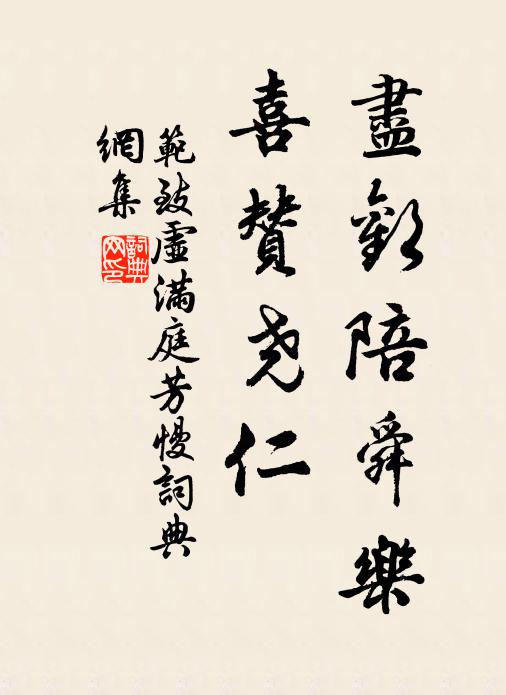 盡歡陪舜樂
喜贊尧仁
範致虛滿庭芳慢詞典
網集
詞典
网印